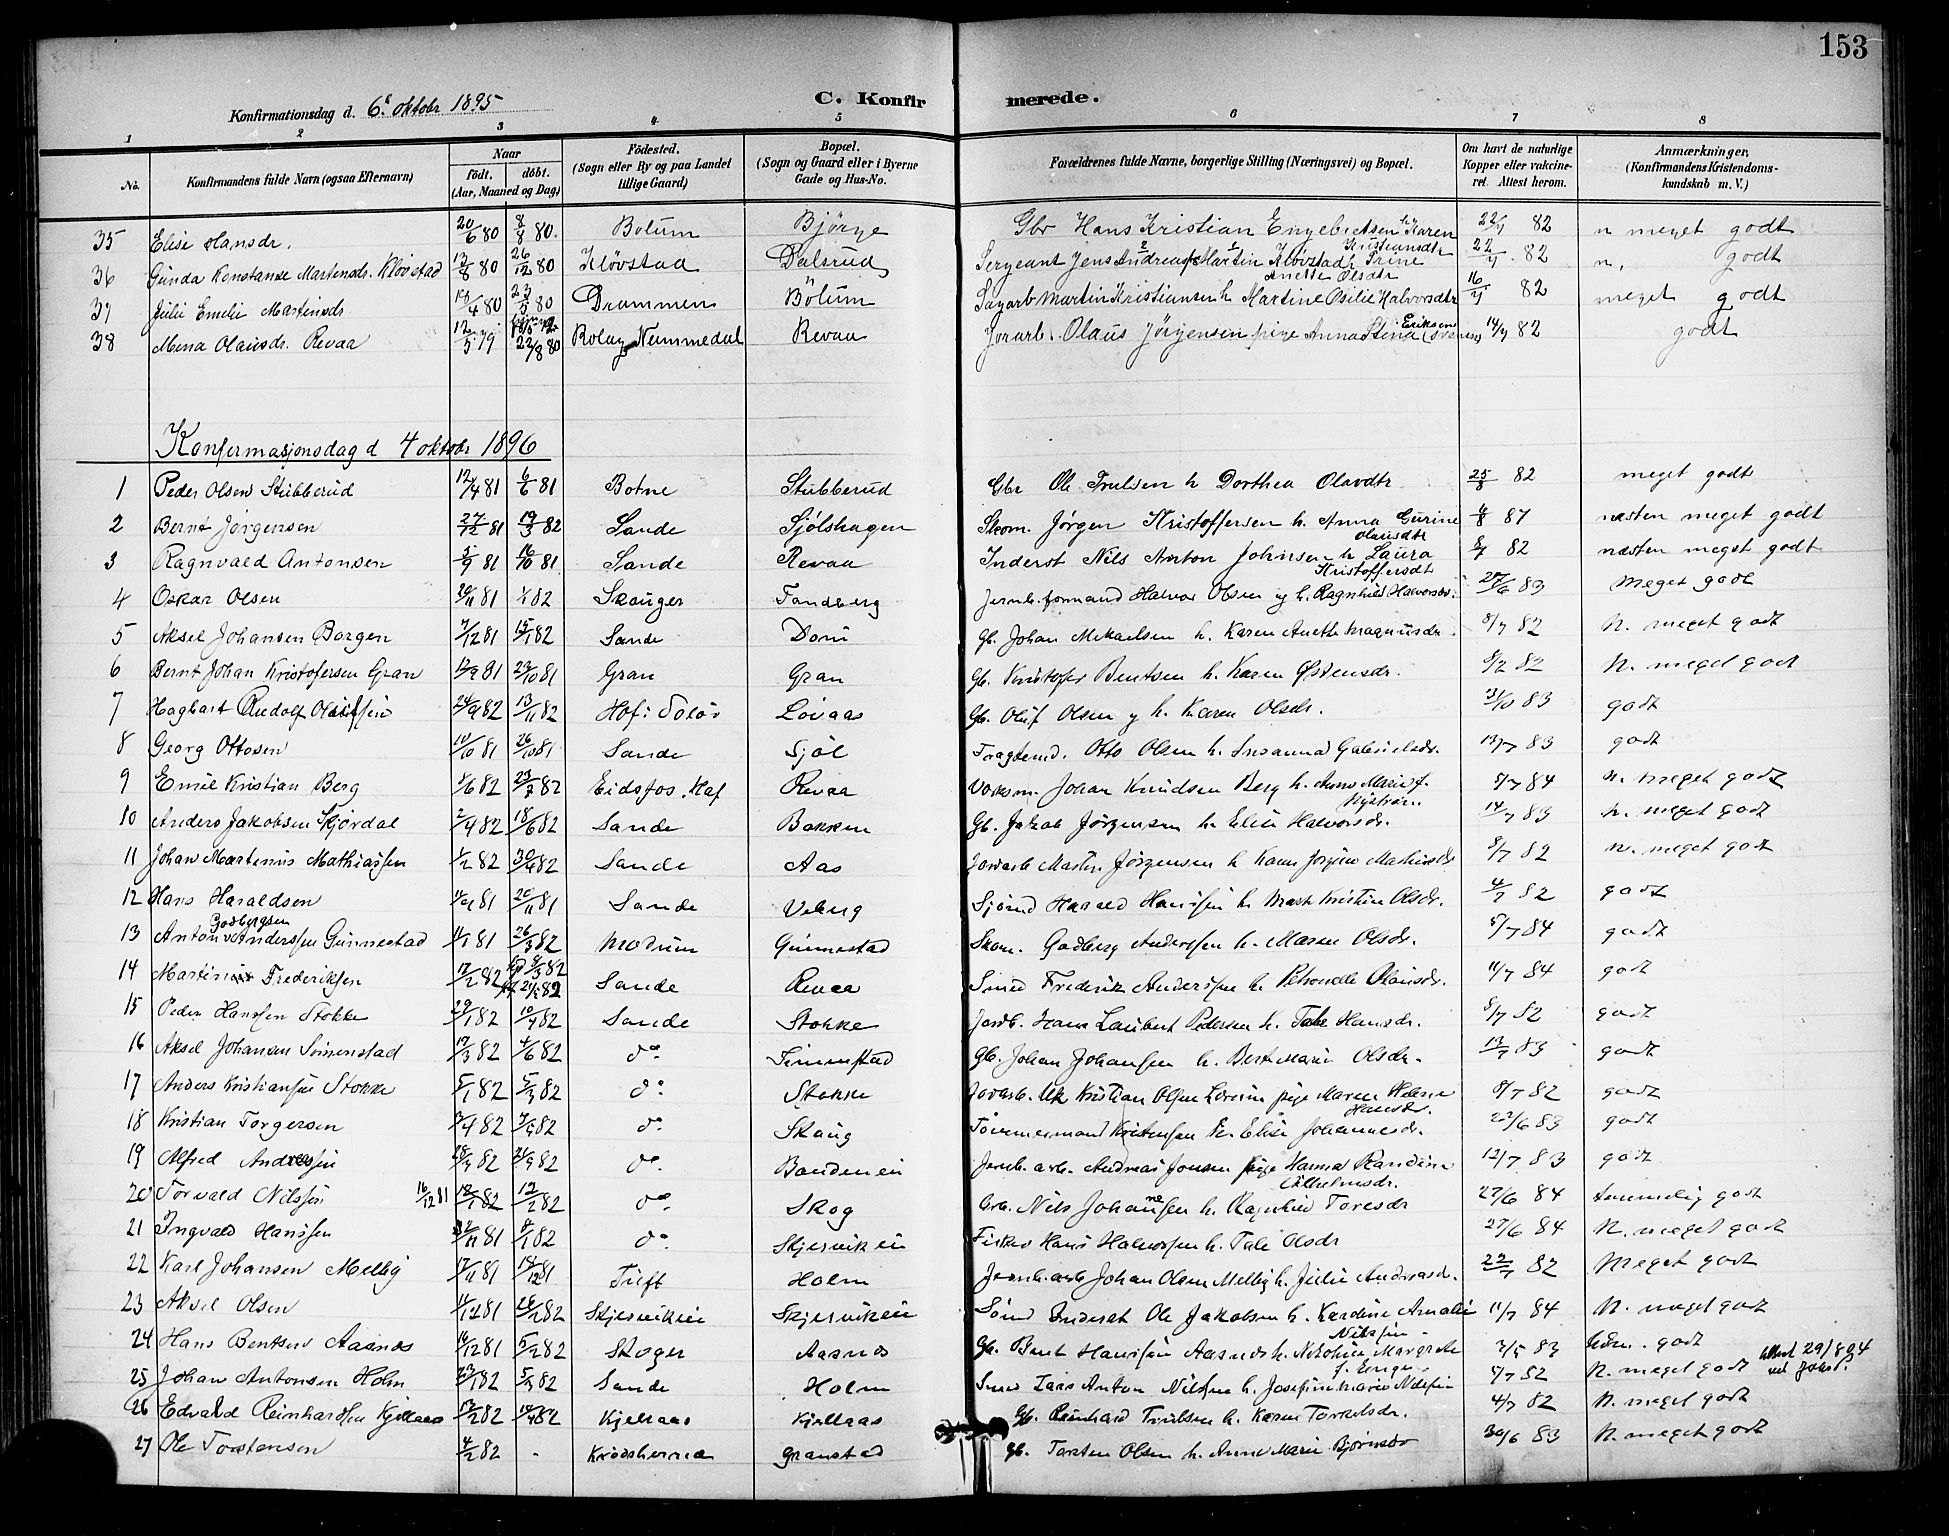 153
Konfirmationsdag d. 6te oktobr 1895
C. Konfirmerede.
1 2 3 4 5 6 7 8
No. Konfirmandens fulde Navn (ogsaa Efternavn) Naar födt. döbt. (Aar, Maaned og Dag) Födested. (Sogn eller By og paa Landet tillige Gaard) Bopæl. (Sogn og Gaard eller i Byerne Gade og Hus-No. Forældrenes fulde Navne, borgerlige Stilling (Næringsvei) og Bopæl. Om havt de naturlige Kopper eller vakcineret. Attest herom. Anmærkninger. (Konfirmandens Kristendomskundskab m. V.)
35 Elise Hansdr. 20/6 80 8/8 80. Bolum Bjørge Gbr Hans Kristian Engebretsen h. Karen Kristiansdtr 82 n meget godt
36 Gunda Konstanse Martensdr. Kløvstad 12/8 80 26/12 80 Kløvstad Dalsrud Sergeant Jens Andreas Martin Kløvstad Trine Anette Olsdtr 82 n. godt
37 Julie Emelie Martinsdr 80 23/5 80 Drammen Bölum Sagarb Martin Kristiansen h. Martine Osilie Halvorsdtr 82 meget godt
38 Mena Olausdr. Revaa 12/5 79 22/8 80 Rolag Nummedal Revaa Jorarb. Olaus Jørgensen pige Anna Stina Eriksen 14/7 82 godt
Konfermasjonsdag d 4 oktobr 1896
1 Peder Olsen Stubberud 12/4 81 6/6 81 Botne Stubberud Gbr Ole Trulsen h Dorthea Olavdtr 25/8 82 meget godt
2 Bernt Jørgensen 27/12 81 19/3 82 Sande Sjølshagen Skom. Jörgen Kristoffersen h. Anna Gurine Olausdtr 4/8 87 næsten meget godt
3 Ragnvald Antonsen 5/9 81 16/10 81 Sande Revaa Inderst Nils Anton Johnsen h Laura Kristoffersdt 82 næsten meget godt
4 Oskar Olsen 20/11 81 1/1 82 Skouger Fandberg Jernb. formand Halvor Olsen og h. Ragnhild Halvorsdr. 27/6 83 Meget godt
5 Aksel Johansen Borgen 7/12 81 15/1 82 Sande Dorn Gb. Johan Mikaelsen h. Karen Anette Magnusdr. 8/7 82 N. meget godt
6 Bernt Johan Kristofersen Gran 12/9 81 23/10 81 Gran Gran Gb. Kristofer Bentsen h. Karen Østensdr. 8/2 82 N. meget godt
7 Hagbart Rudolf Olufsen 24/9 82 13/11 82 Hof i Solør Løvaas Gb. Oluf Olsen og h. Karen Olsdr. 31/10 83 godt
8 Georg Ottosen 10/10 81 26/10 81 Sande Sjøl Fragtemd. Otto Olsen h. Susanna Gabrielsdr. 13/7 83 godt
9 Emil Kristian Berg 1/6 82 23/7 82 Eidsfos. Hof Revaa Voksm. Johan Knudsen Berg h. Anne Marie f. Nystrøm. 8/7 84 n. meget godt
10 Anders Jakobsen Skjørdal 2/4 82 18/6 82 Sande Bakken Gb. Jakob Jørgensen h. Elise Halvorsdr. 14/7 83 n. meget godt
11 Johan Martenius Mathiassen 1/2 82 30/4 82 Sande Aas Jordarb Martin Jørgensen h Karen Jørgine Mathiasdr 8/7 82 n. meget godt
12 Hans Haraldsen 81 20/11 81 Sande Veberg Sjømd Harald Hansen h. Mart Kristin Olsdr. 4/7 82 godt
13 Anton Godbergsen Anderssen Gunnestad 81 26/3 82 Modum Gunnestad Skom. Godberg Anderssen h. Maren Olsdr. 5/7 84 godt
14 Martin Frederiksen 17/2 82 8/3 82 Sande Revaa Smed Frederik Anderssen h. Petronelle Olausdr. 11/7 84 godt
15 Peder Hanssen Stokke 29/1 82 10/4 82 Sande Stokke Jordb. Hans Laubert Pedersen h. Tale Hansdr. 8/7 82 godt
16 Aksel Johansen Simenstad 17/3 82 4/6 82 do. Simenstad Gb. Johan Johansen h. Bert Marie Olsdr. 13/7 83 godt
17 Anders Kristiansen Stokke 5/1 82 5/3 82 do. Stokke Jordarb. Uk Kristian Olsen Lersiin pige Maren Helene Hansdr. 8/7 82 godt
18 Kristian Torgersen 82 82 do. Skaug Tømmermand Kristensen h. Elise Johannesdr. 22/6 83 godt
19 Alfred Andressen 82 82 do. Baudenein Jernb. arb. Andreas Jonsen pige Hanna Randine Vilhelmsdr. 12/7 83 godt
20 Torvald Nilssen 16/12 81 82 12/2 82 do. Skog Arb. Nils Johannesen h. Ragnhild Toresdr 27/6 84 temmelig godt
21 Ingvald Hanssen 81 82 do. Skjersvikein Fisker Hans Halvorssen h. Tale Olsdr 27/6 84 N. meget godt
22 Karl Johansen Melbg 17/11 81 81 Tuft Holm Jernb. arb Johan Olsen Melbg h. Julie Andreasdr. 22/7 82 Meget godt
23 Aksel Olsen 81 26/2 82 Skjersvikein Skjersvikein Sømd Inderst Ole Jakobsen h. Kardine Amalie Nilssen 11/7 84 N. meget godt
24 Hans Bentsen Aasnæs 81 5/2 82 Skoger Aasnæs Gb. Bent Hanssen Aasnæs h. Nikoline Margrete f. Enger. 3/5 83 tem. godt
25 Johan Antonsen Holm 23/1 82 5/3 82 Sande Holm Smed Lars Anton Nilssen h. Josefine Marie Nilssen 5/7 82 N. meget godt attest 29/8 94
26 Edvald Reinhardssen Kjellaas 13/2 82 82 Kjellaas Kjellaas Gb. Reinhard Trulsen h. Karen Torkelsdr. 4/7 82 N. meget godt
27 Ole Torstensen 4/2 82 - Krødsherred Granstad Gb. Torsten Olsen h. Anne Marie Bjørnsdr 30/6 83 N. meget godt